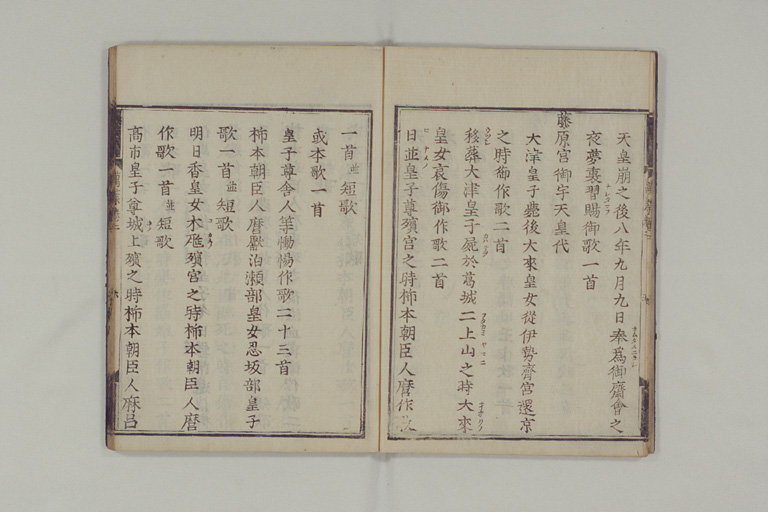 天皇崩之後八年九月九日奉為御齋會之
夜夢裏習賜御歌一首
藤原宮御宇天皇代
大津皇子薨後大來皇女從伊勢齊宮還京
之時御作歌二首
移葬大津皇子屍於葛城二上山之時大來
皇女哀傷御作歌二首
日並皇子尊殯宮之時柿本朝臣人麿作歌
一首並短歌
或本歌一首
皇子尊舍人等慟傷作歌二十三首
柿本朝臣人麿獻泊瀬部皇女忍坂部皇子
歌一首並短歌
明日香皇女木𤭖殯宮之時柿本朝臣人麿
作歌一首並短歌
高市皇子尊城上殯之時柿本朝臣人麻呂